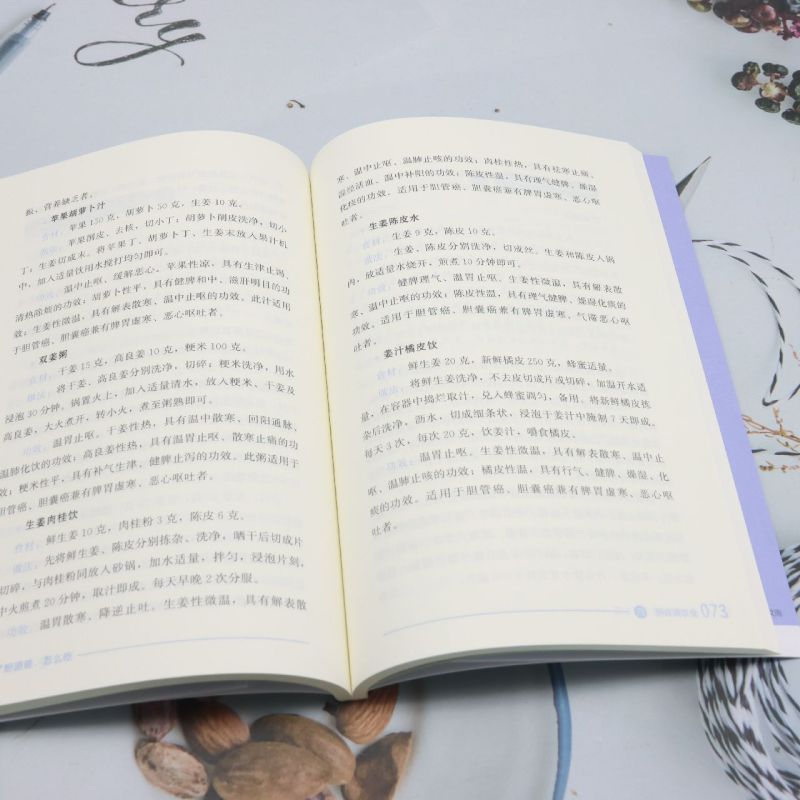 振、营养缺乏者。
苹果胡萝卜汁
食材：苹果150克，胡萝卜50克，生姜10克。
做法：苹果削皮、去核，切小丁；胡萝卜削皮洗净，切小
丁；生姜切成末。将苹果丁、胡萝卜丁、生姜末放入果汁机
中，加入适量饮用水搅打均匀即可。
功效：温中止呕，缓解恶心。苹果性凉，具有生津止渴、
清热除烦的功效；胡萝卜性平，具有健脾和中、滋肝明目的功
效；生姜性微温，具有解表散寒、温中止呕的功效。此汁适用
于胆管癌、胆囊癌兼有脾胃虚寒、恶心呕吐者。
双姜粥
食材：干姜15克，高良姜10克，粳米100克。
做法：将干姜、高良姜分别洗净，切碎；粳米洗净，用水
浸泡30分钟。锅置火上，加入适量清水，放入粳米、干姜及
高良姜，大火煮开，转小火，煮至粥熟即可。
功效：温胃止呕。干姜性热，具有温中散寒、回阳通脉、
温肺化饮的功效；高良姜性热，具有温胃止呕、散寒止痛的功
效；粳米性平，具有补气生津、健脾止泻的功效。此粥适用于
胆管癌、胆囊癌兼有脾胃虚寒、恶心呕吐者。
生姜肉桂饮
食材：鲜生姜10克，肉桂粉3克，陈皮6克。
做法：先将鲜生姜、陈皮分别拣杂、洗净，晒干后切成片
切碎，与肉桂粉同放入砂锅，加水适量，拌匀，浸泡片刻，
中火煎煮20分钟，取汁即成。每天早晚2次分服。
功效：温胃散寒、降逆止吐。生姜性微温，具有解表散
怎么吃
寒、温中止呕、温肺止咳的功效；肉桂性热，具有祛寒止痛、
温经活血、温中补阳的功效；陈皮性温，具有理气健脾、燥湿
化痰的功效。适用于胆管癌、胆囊癌兼有脾胃虚寒、恶心呕
吐者。
生姜陈皮水
食材：生姜9克，陈皮10克。
做法：生姜、陈皮分别洗净，切成丝。生姜和陈皮入锅
内，放适量水烧开，煎煮10分钟即可。
功效：健脾理气、温胃止呕。生姜性微温，具有解表散
寒、温中止呕的功效；陈皮性温，具有理气健脾、燥湿化痰的
功效。适用于胆管癌、胆囊癌兼有脾胃虚寒、气滞恶心呕
吐者。
姜汁橘皮饮
食材：鲜生姜20克，新鲜橘皮250克，蜂蜜适量。
做法：将鲜生姜洗净，不去皮切成片或切碎，加温开水适
量，在容器中捣烂取汁，兑入蜂蜜调匀，备用。将新鲜橘皮拣
杂后洗净，沥水，切成细条状，浸泡于姜汁中腌制7天即成。
每天3次，每次20克，饮姜汁，嚼食橘皮。
功效：温胃止呕。生姜性微温，具有解表散寒、温中止
呕、温肺止咳的功效；橘皮性温，具有行气、健脾、燥湿、化
痰的功效。适用于胆管癌、胆囊癌兼有脾胃虚寒、恶心呕
吐者。
073